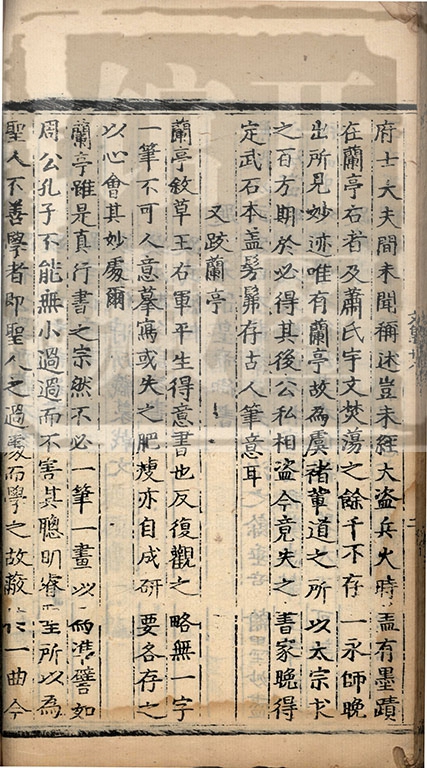 府士大夫間未聞稱述豈未經大盜兵火時盖有墨蹟
在蘭亭右者及蕭氏宇文焚蕩之餘千不存一永師晚
出所見妙迹唯有蘭亭故為虞褚軰道之所以太宗求
之百方期於必得其後公私相盗今竟失之書家晚得
定武石本盖髣髴存古人筆意耳
又跋蘭亭
蘭亭敘草王右軍平生得意書也反復觀之略無一字
一筆不可人意摹寫或失之肥瘦亦自成研要各存之
以心會其妙處爾
蘭亭雖是真行書之宗然不必一筆一畫以為準譬如
周公孔子不能無小過過而不害其聰明睿聖所以為
聖人不善學者即聖人之過處而學之故蔽於一曲今